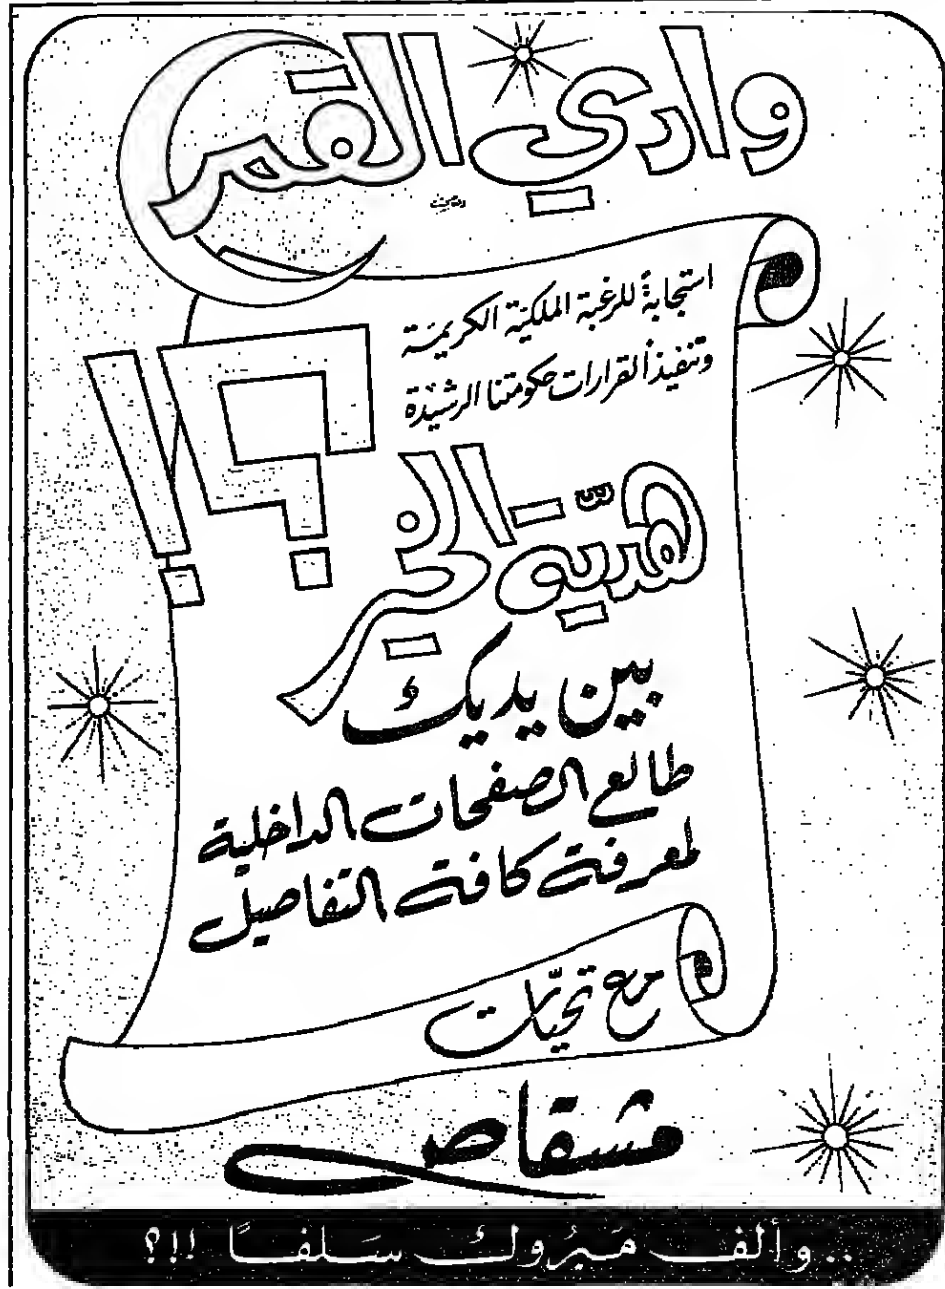 وادي القمر
استجابةً للرغبة الملكية الكريمة
وتنفيذاً لقرارات حكومتنا الرشيدة
هديّة الخير ؟!
بين يديك
طالع الصفحات الداخلية
لمعرفة كافة التفاصيل
مع تحيّات
مشقاص
..وألف مبروك سلفاً !!؟